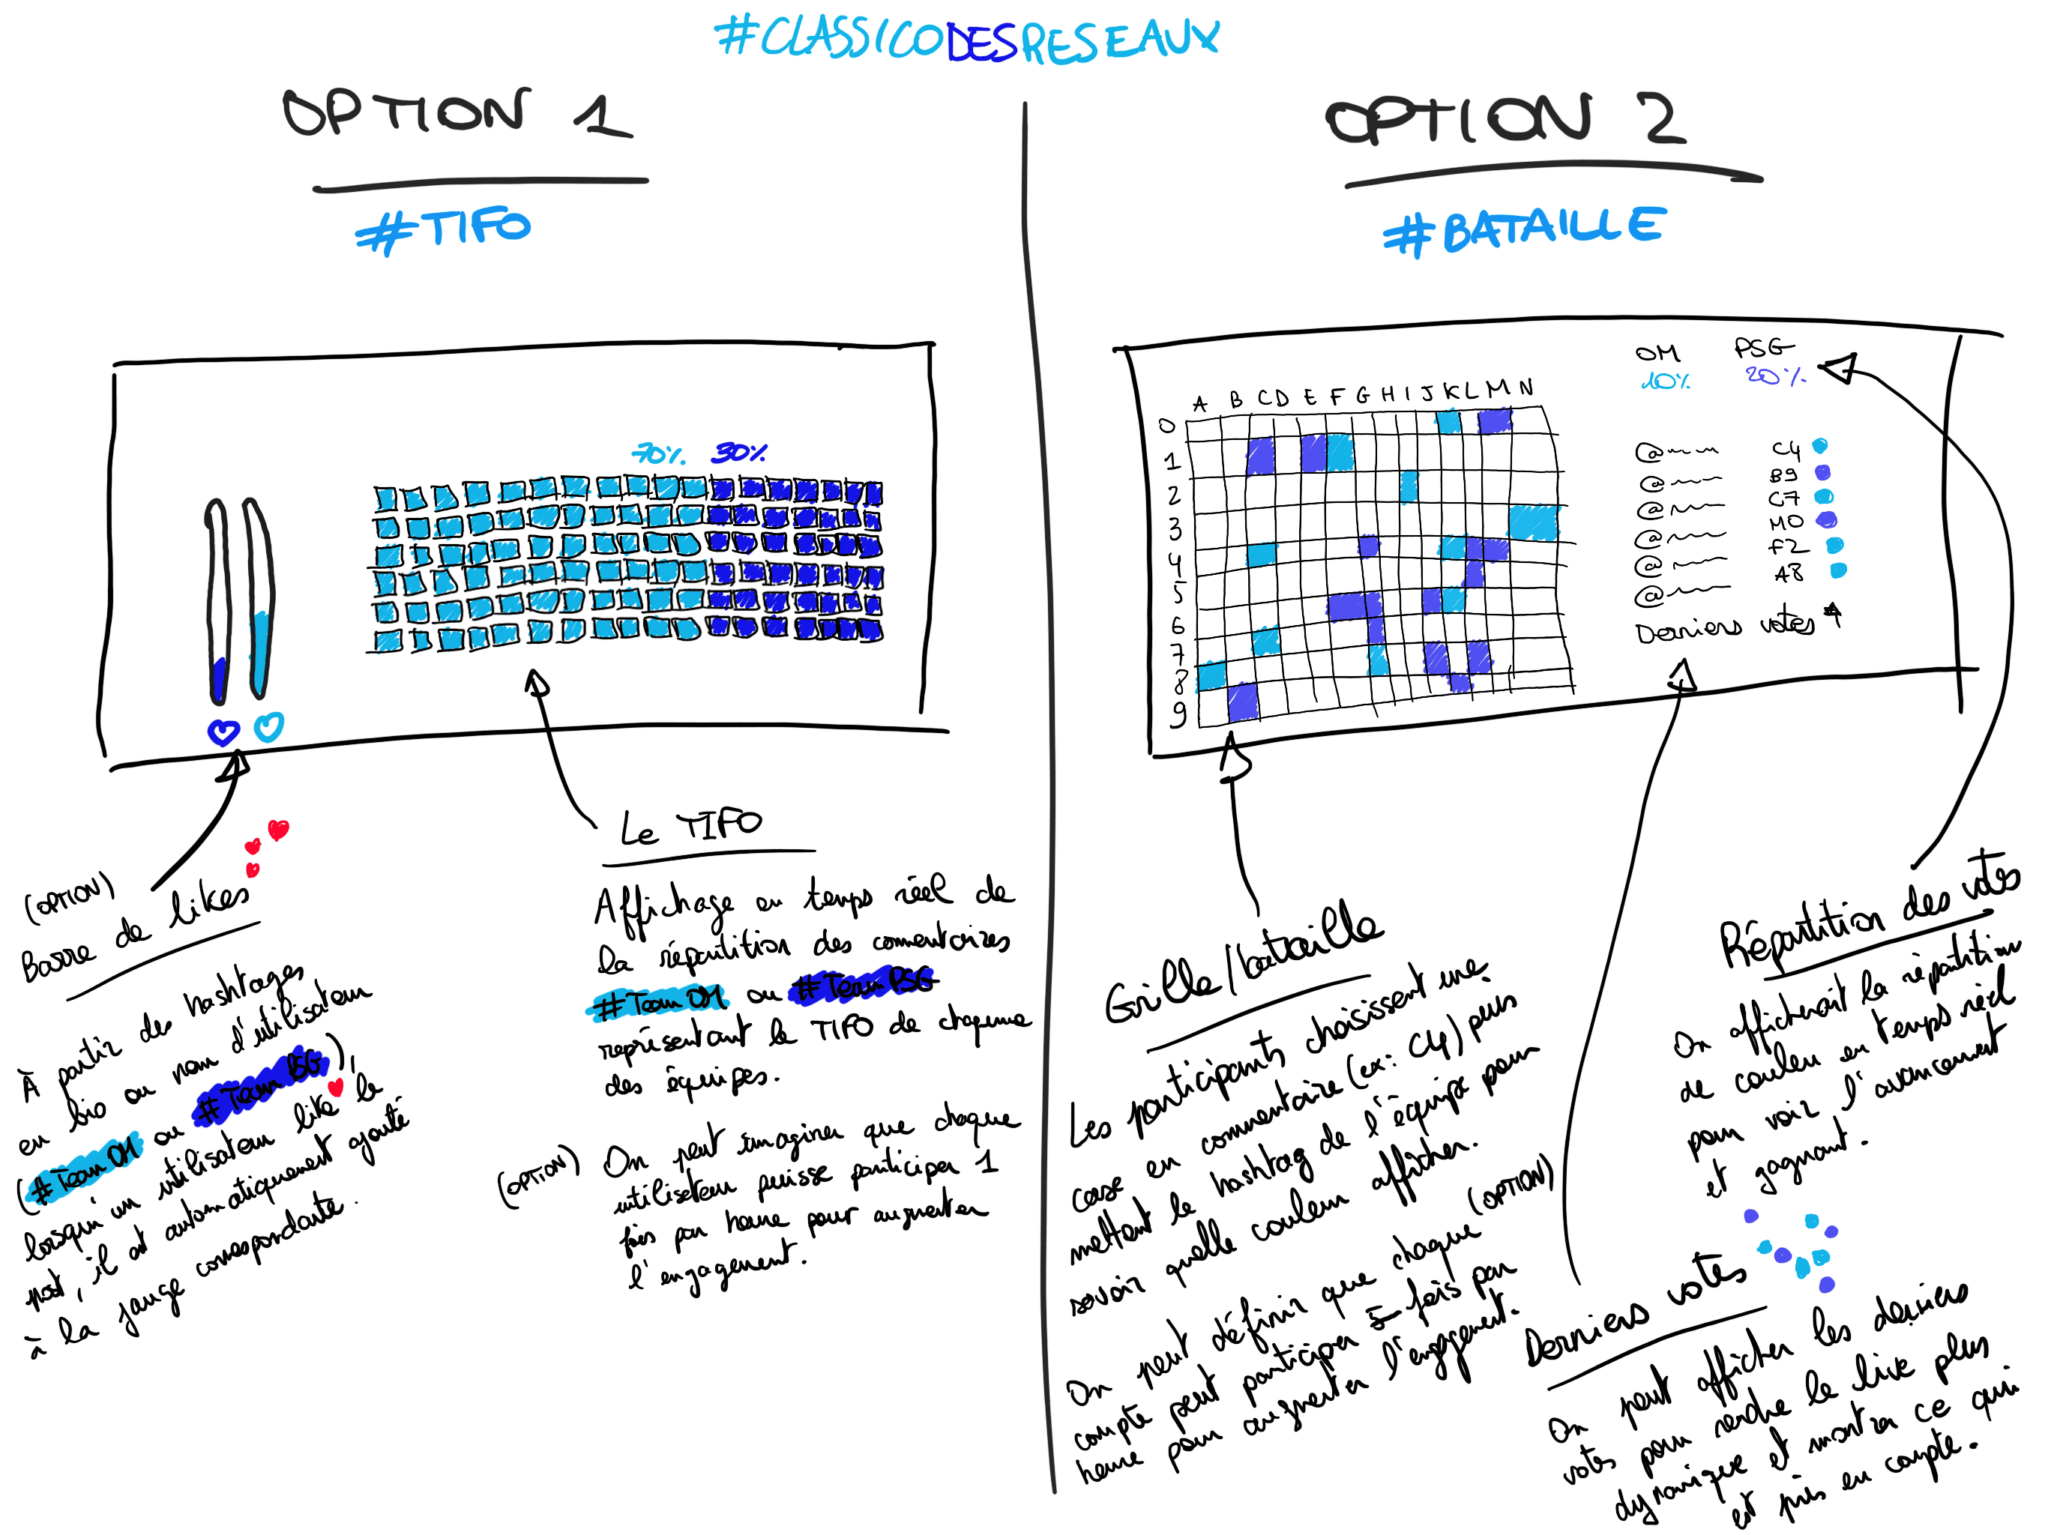 #CLASSICODESRESEAUX
OPTION 1
#TIFO
70% 30%
(OPTION)
Barre de likes
À partir des hashtags
en bio ou nom d'utilisateur
(#Team OM ou #Team PSG),
lorsqu'un utilisateur like le
post, il est automatiquement ajouté
à la jauge correspondante.
Le TIFO
Affichage en temps réel de
la répartition des commentaires
#Team OM ou #Team PSG
représentant le TIFO de chacune
des équipes.
(OPTION) On peut imaginer que chaque
utilisateur puisse participer 1
fois par heure pour augmenter
l'engagement.
OPTION 2
#BATAILLE
OM PSG
10% 20%
A B C D E F G H I J K L M N
0
1
2
3
4
5
6
7
8
9
@ C4
@ B9
@ G7
@ M0
@ F2
@ A8
Derniers votes
Grille/bataille
Les participants choisissent une
case en commentaire (ex: C4) puis
mettent le hashtag de l'équipe pour
savoir quelle couleur afficher.
(OPTION)
On peut définir que chaque
compte peut participer 5 fois par
heure pour augmenter l'engagement.
Répartition des votes
On afficherait la répartition
de couleur en temps réel
pour voir l'avancement
et gagnant.
Derniers votes
On peut afficher les derniers
votes pour rendre le live plus
dynamique et montrer ce qui
est pris en compte.